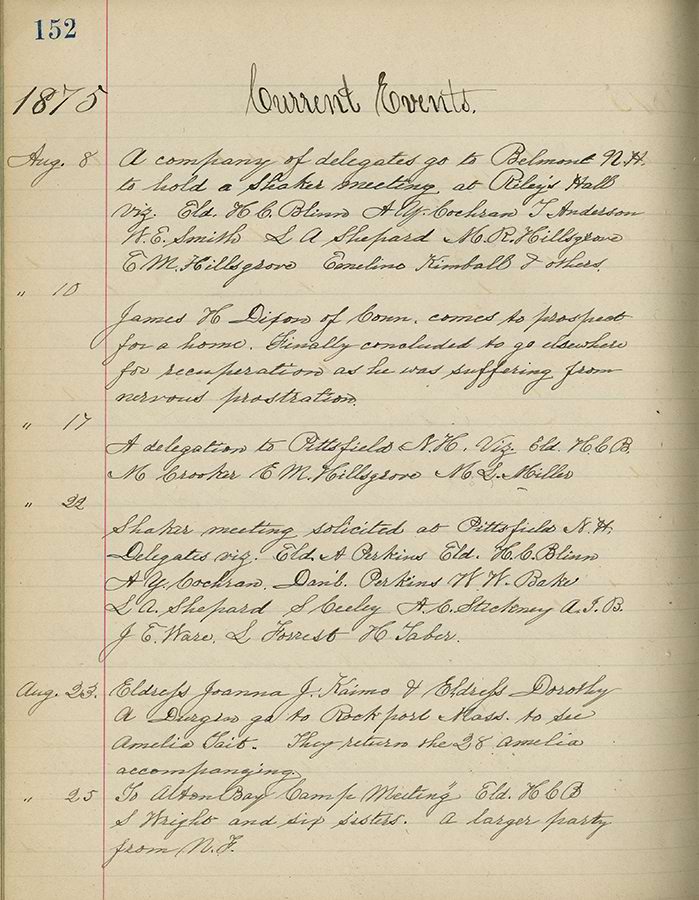 152
1875 Current Events.
Aug. 8 A company of delegates go to Belmont N.H.
to hold a Shaker meeting at Riley's Hall
viz. Eld. H. C. Blinn A. Y. Cochran J Anderson
W. E. Smith L A Shepard M. R. Hillsgrove
E. M. Hillsgrove Emeline Kimball & others.
" 10
James H Dixon of Conn. comes to prospect
for a home. Finally concluded to go elsewhere
for recuperation as he was suffering from
nervous prostration.
" 17
A delegation to Pittsfield N.H. Viz. Eld. H. C. B.
M Crooker E M. Hillsgrove M. L. Miller
" 22
Shaker meeting solicited at Pittsfield N.H.
Delegates viz. Eld. A Perkins Eld. H. C. Blinn
A. Y. Cochran. Dan'l. Perkins W. W. Baker
L A. Shepard S Ceeley A. C. Stickney A. J. B.
J. E. Ware. L Forrest H Taber.
Aug. 23. Eldress Joanna J. Kaime & Eldress Dorothy
A Durgin go to Rockport Mass. to see
Amelia Tait. They return the 28 Amelia
accompanying.
" 25 To Alton Bay "Camp Meeting" Eld. H C B
S Wright and six sisters. A larger party
from N. F.